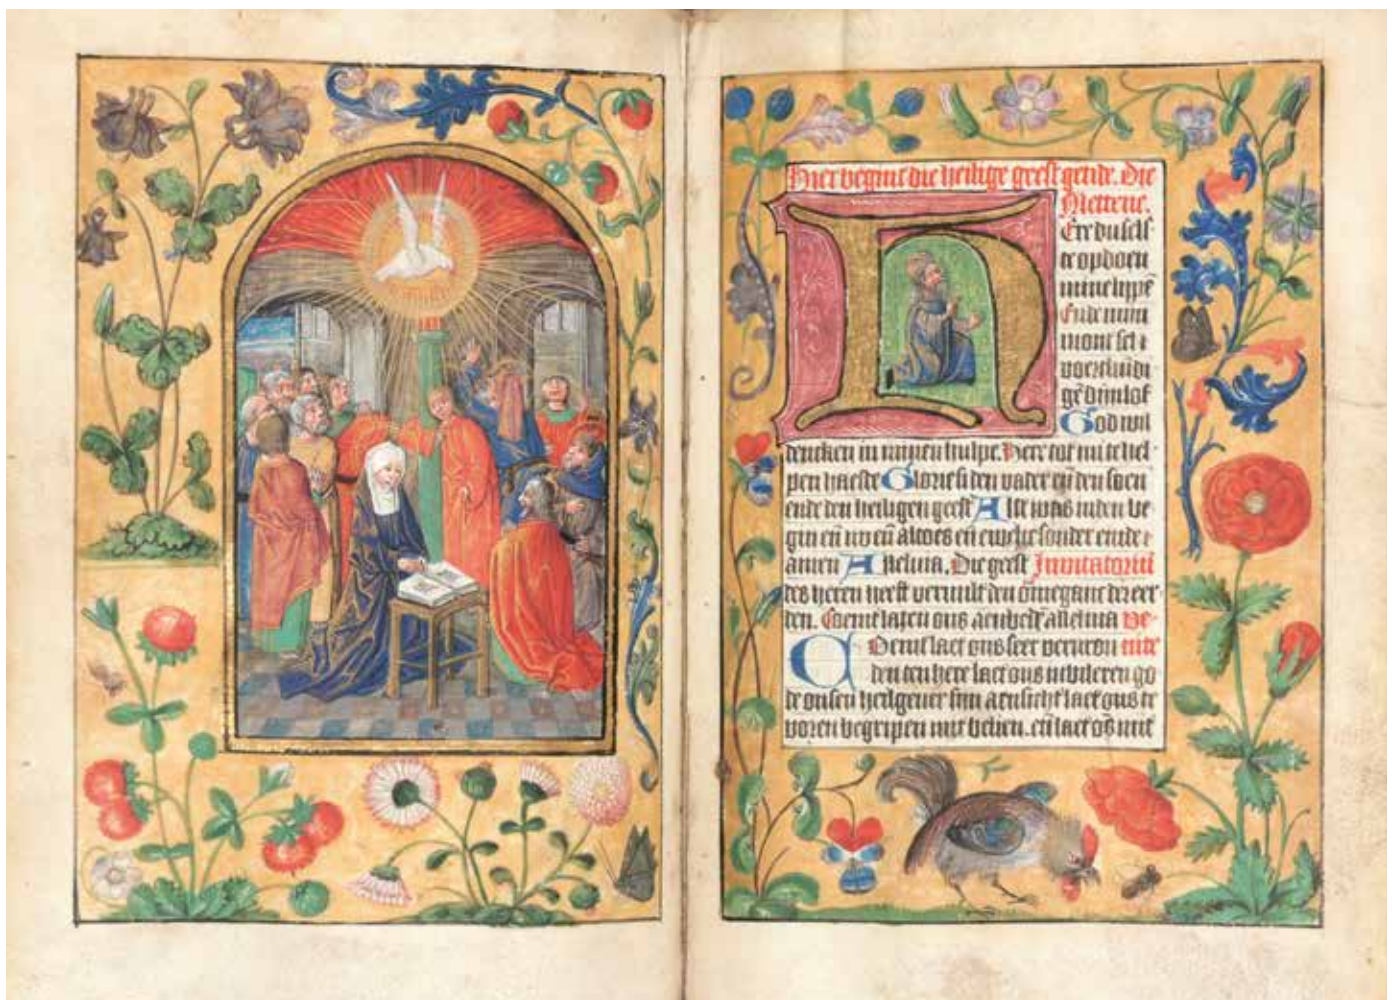 Hier begint die heilige geest getide. Die
Mettene.
Ere du selst
te opdoen
mine lippē
Ende minn
mont sel
voercūndi
gē dijn lof
God wil
dencken in minen hulpe. Here tot mi te hel-
pen haeste Glorie si den vader eñ den soen
ende den heiligen geest Alst was inden be-
gin eñ nv eñ altoes eñ ewelic sonder ende
amen Alleluia. Die geest Inuitatoriū
des heren heeft veruult den ommeganc der eer-
den. Coemt laten ons aenbedē alleluia Ve-
Oemt laet ons seer verueron nite
den den here laet ons iubileren go
de onsen heilgeuer sijn aensicht laet ons te
voren begripen mit belien. eñ laet ōs mit